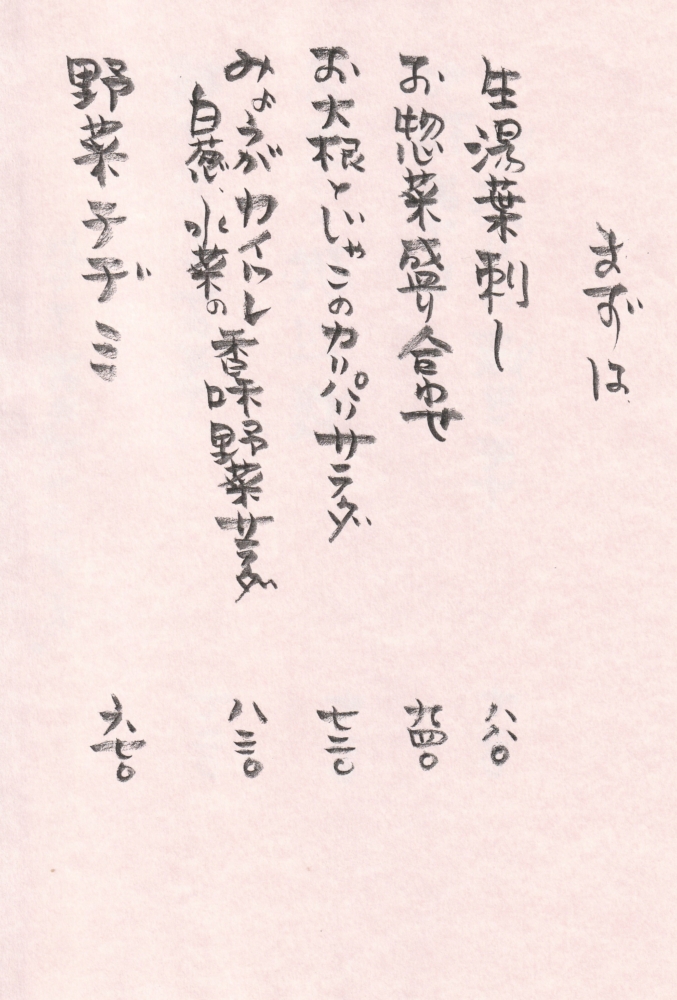 まずは
生湯葉刺し
八八〇
お惣菜盛り合わせ
九四〇
お大根とじゃこのカリパリサラダ
七三〇
みょうが カイワレ
白葱、水菜の香味野菜サラダ
八三〇
野菜チヂミ
六七〇